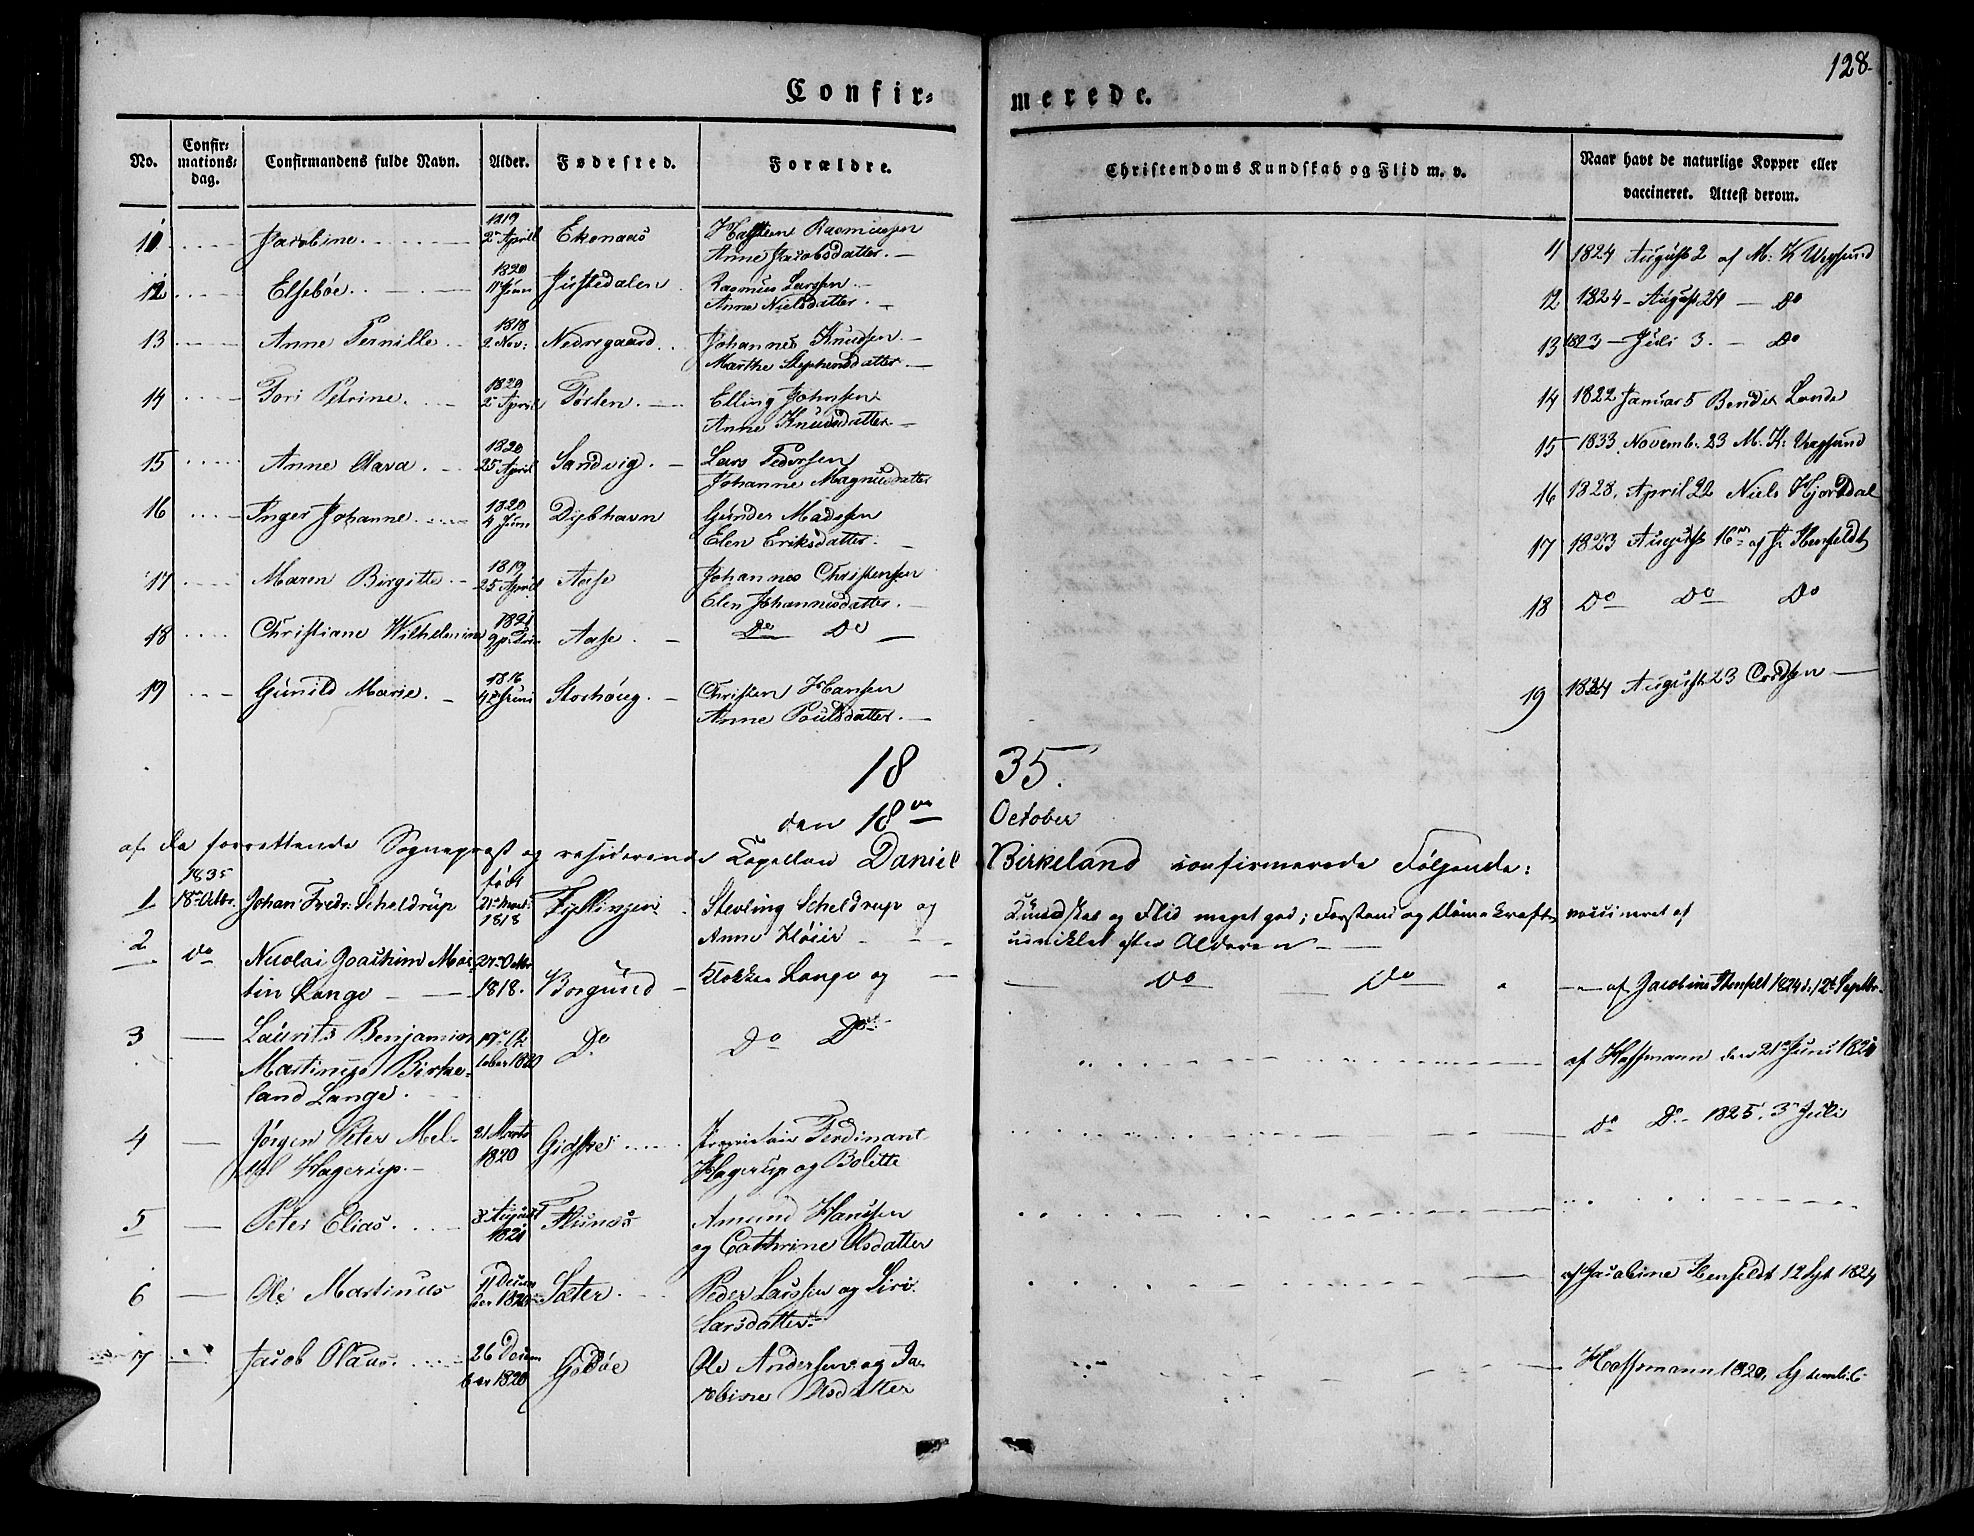 128.
Confir-
merede.
No.
Confir-
mations-
dag.
Confirmandens fulde Navn.
Alder.
Fødested.
Forældre.
Christendoms Kundskab og Flid m. v.
Naar havt de naturlige Kopper eller
vaccineret. Attest derom.
11 Jacobine. 1819 2 April Ekonaas Rasmussen
Anne Jacobsdatter.
11 1824 August 2 af M. K.
12 Elsebøe. 1820 11 Juni Justedalen Rasmus Larsen
Anne Nielsdatter.
12 1824 - August 24 - Do
13 Anne Pernille 1818 2 Nov: Nedregaard Johannes Knudsen
Marthe Stephensdatter
13 Juli 3. - Do
14 Tori Petrine. 1820 2 April Elling Johnsen
Anne Knudsdatter
14 1822 Januar 5 Bendix Lande
15 Anne Olava. 1820 25 April Sandvig. Lars Pedersen
Johanne Magnusdatter
15 1833 Novemb. 23 M. K.
16 Inger Johanne 1820 4 Juni Dybhavn Gunder Madsen
Elen Eriksdatter.
16 1828, April 22 Niels Hjorddal
17 Maren Birgitte 1819 25 April Aase Johannes Christensen
Elen Johannesdatter.
17 1823 August 16 af J. Stenfeldt
18 Christiane Wilhelmine 1821 Aase Do Do
18 Do Do Do
19 Gunild Marie. 1816 Juni Storhoug. Christen Hansen
Anne Poulsdatter.
19 1834 August 23
18 35.
den 18de October
af de forrettende Sognepræst og residerende Capellan Daniel Birkeland confirmerede Følgende:
1 1835 18de Octbr. Johan Fredr: Scheldrup født 1818 Fyllingen Stevling Scheldrup og
Anne Høier
Kundskab og Flid meget god; Forstand og Dømmekraft vaccineret af
udviklet efter Alderen
2 do Nicolai Joachim Mar-
tin Lange 1818. Borgund Klokker Lange og
Do Do af Jacobine Stenfelt 1824 d. 12 Septbr.
3 Laurits Benjamin
Martinus Birke-
land Lange. 1820 Do Do Do
af Hoffmann den 21 Juni 1820
4 Jørgen Peter
Hagerup. 21 Marts 1820 Gidske Ferdinant
Hagerup og Bolette
do Do 1825. 3 Juli
5 Peter Elias. August 1821 Flisnæs Amund Hansen
og Cathrine Olsdatter
6 Ole Martinus 11 Decem
ber 1820 Sæter Peder Larsen og Siri
Larsdatter.
af Jacobine Stenfeldt 12 Spt 1824
7 Jacob Olaus. 26 Decem
ber 1820 Godøe Ole Andersen og Ja-
cobine Olsdatter
Hoffmann 1820,